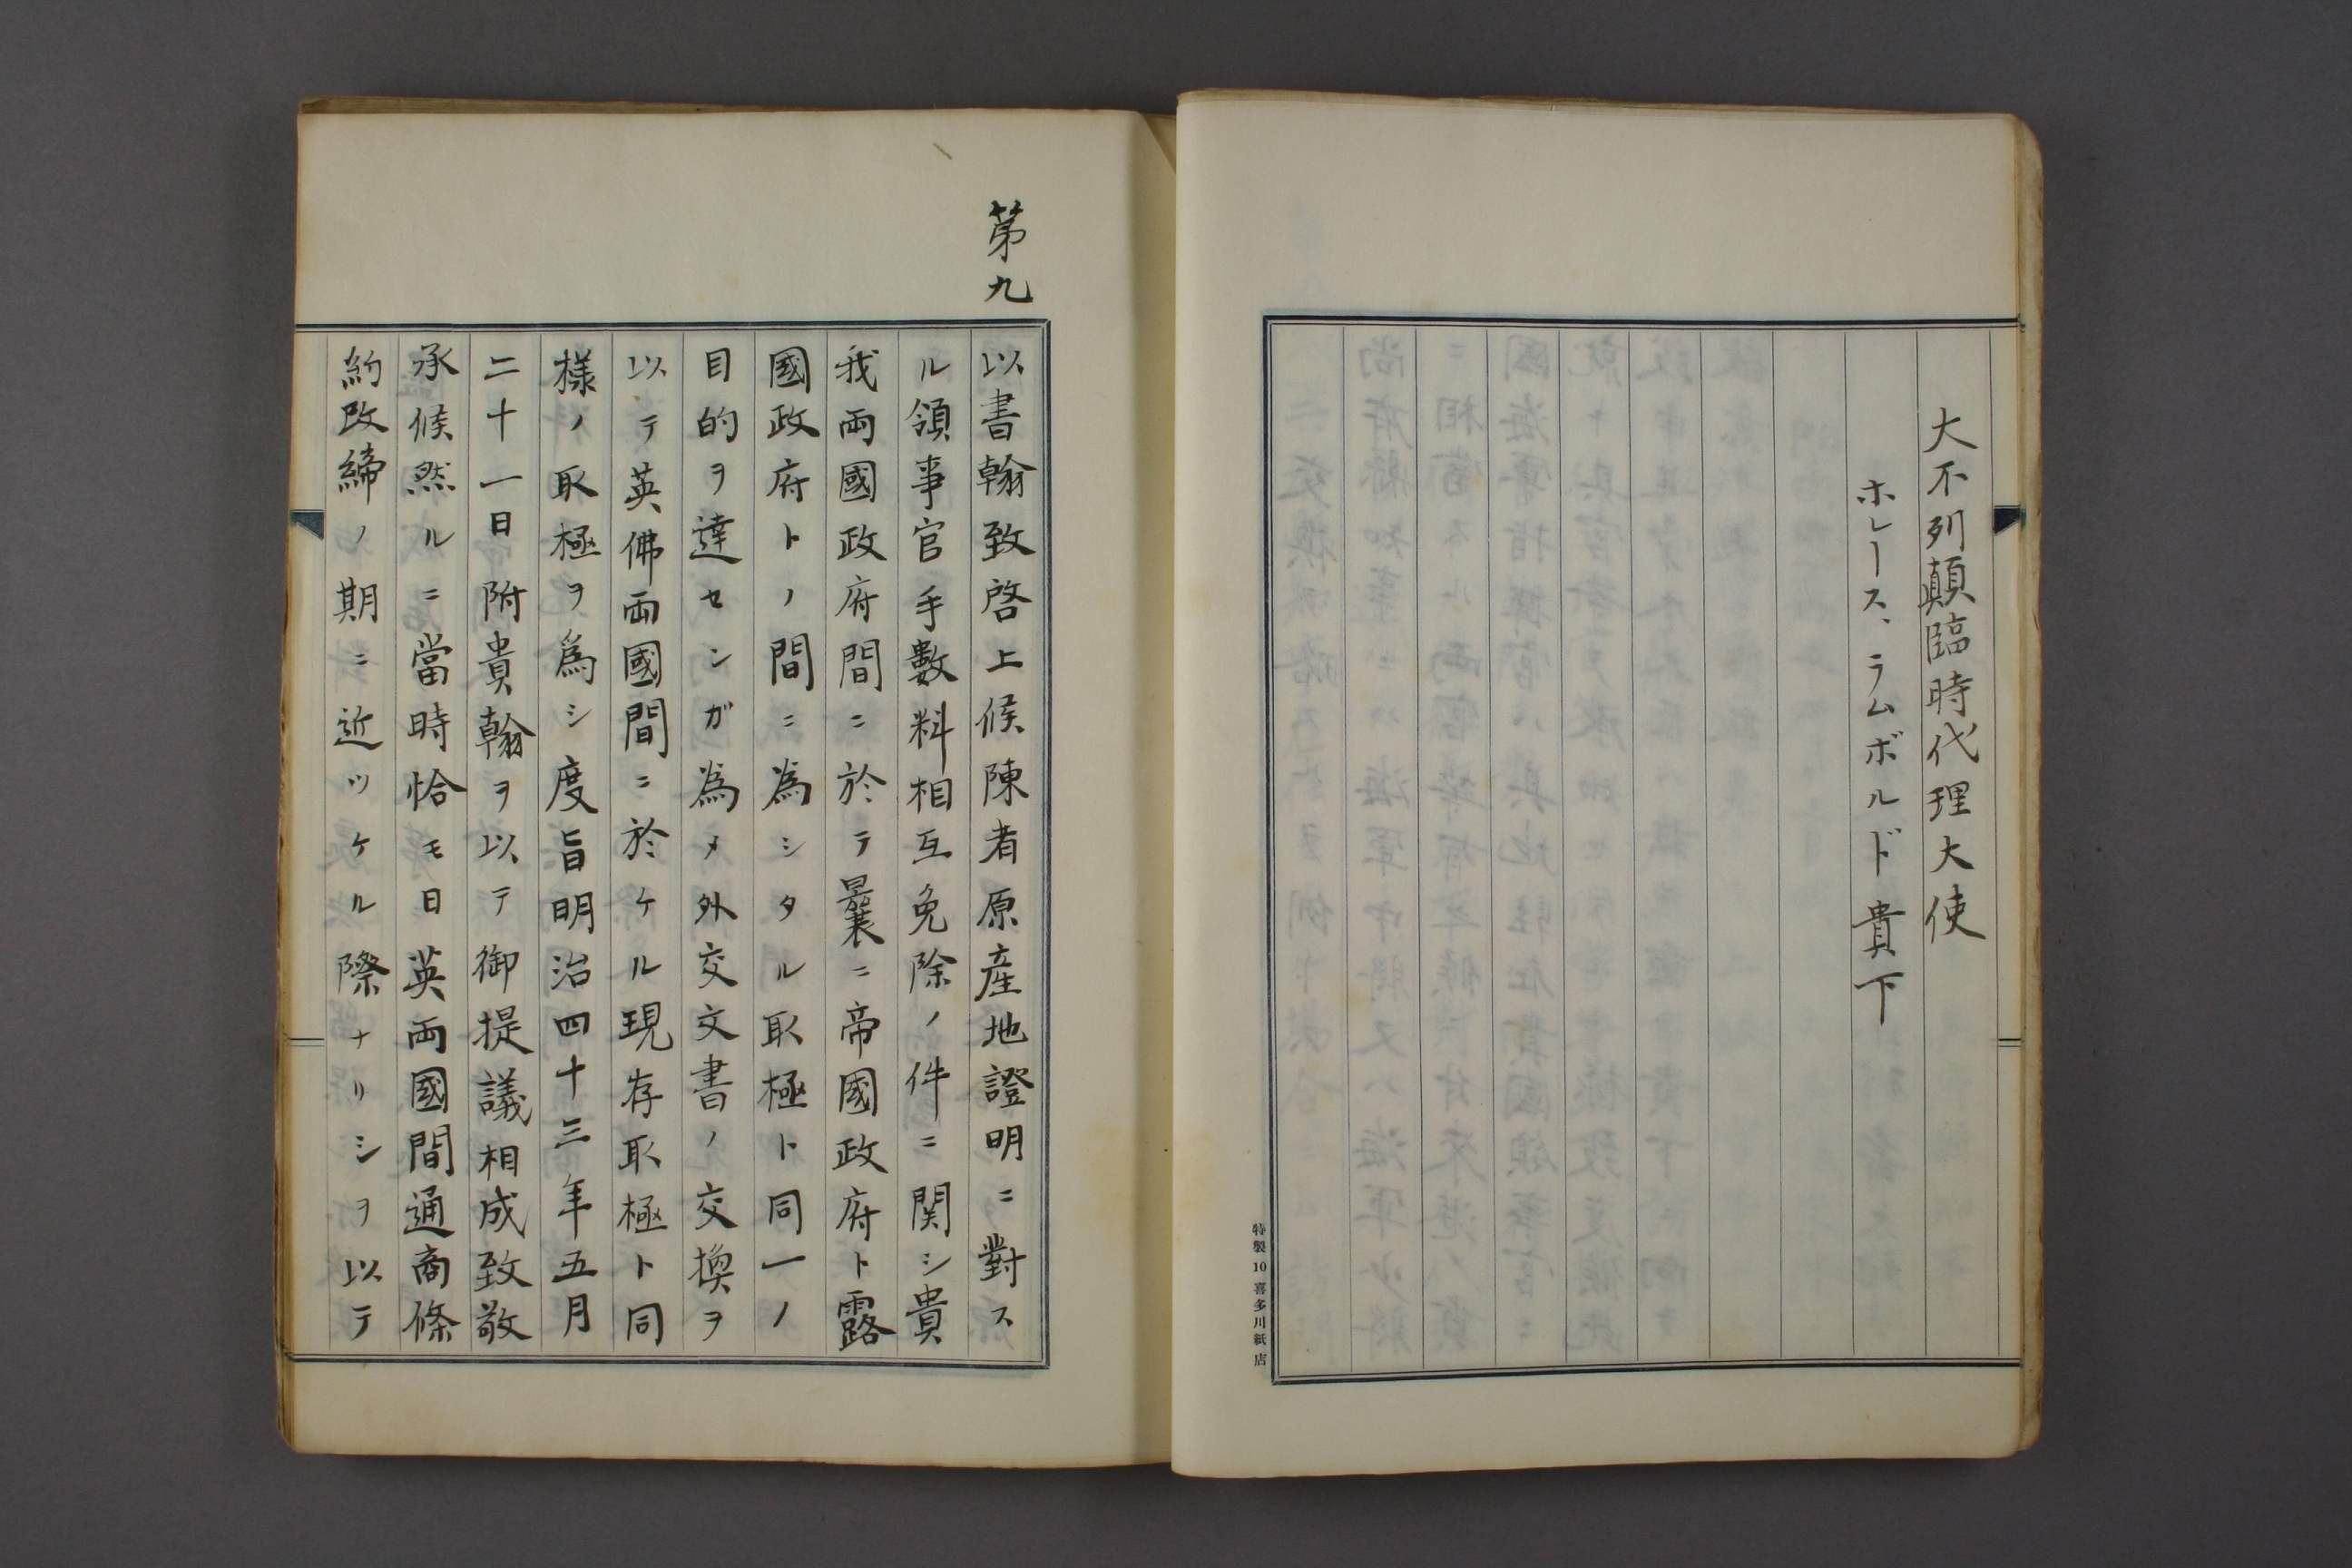 大不列顛臨時代理大使
ホレース、ラムボルド貴下
特製10喜多川紙店
第九
以書翰致啓上候陳者原產地證明ニ對ス
ル領事官手數料相互免除ノ件ニ関シ貴
我兩國政府間ニ於テ曩ニ帝國政府ト露
國政府トノ間ニ為シタル取極ト同一ノ
目的ヲ達センガ為メ外交文書ノ交換ヲ
以テ英佛両國間ニ於ケル現存取極ト同
樣ノ取極ヲ爲シ度旨明治四十三年五月
二十一日附貴翰ヲ以テ御提議相成致敬
承候然ルニ當時恰モ日英両國間通商條
約改締ノ期ニ近ツケル際ナリシヲ以テ